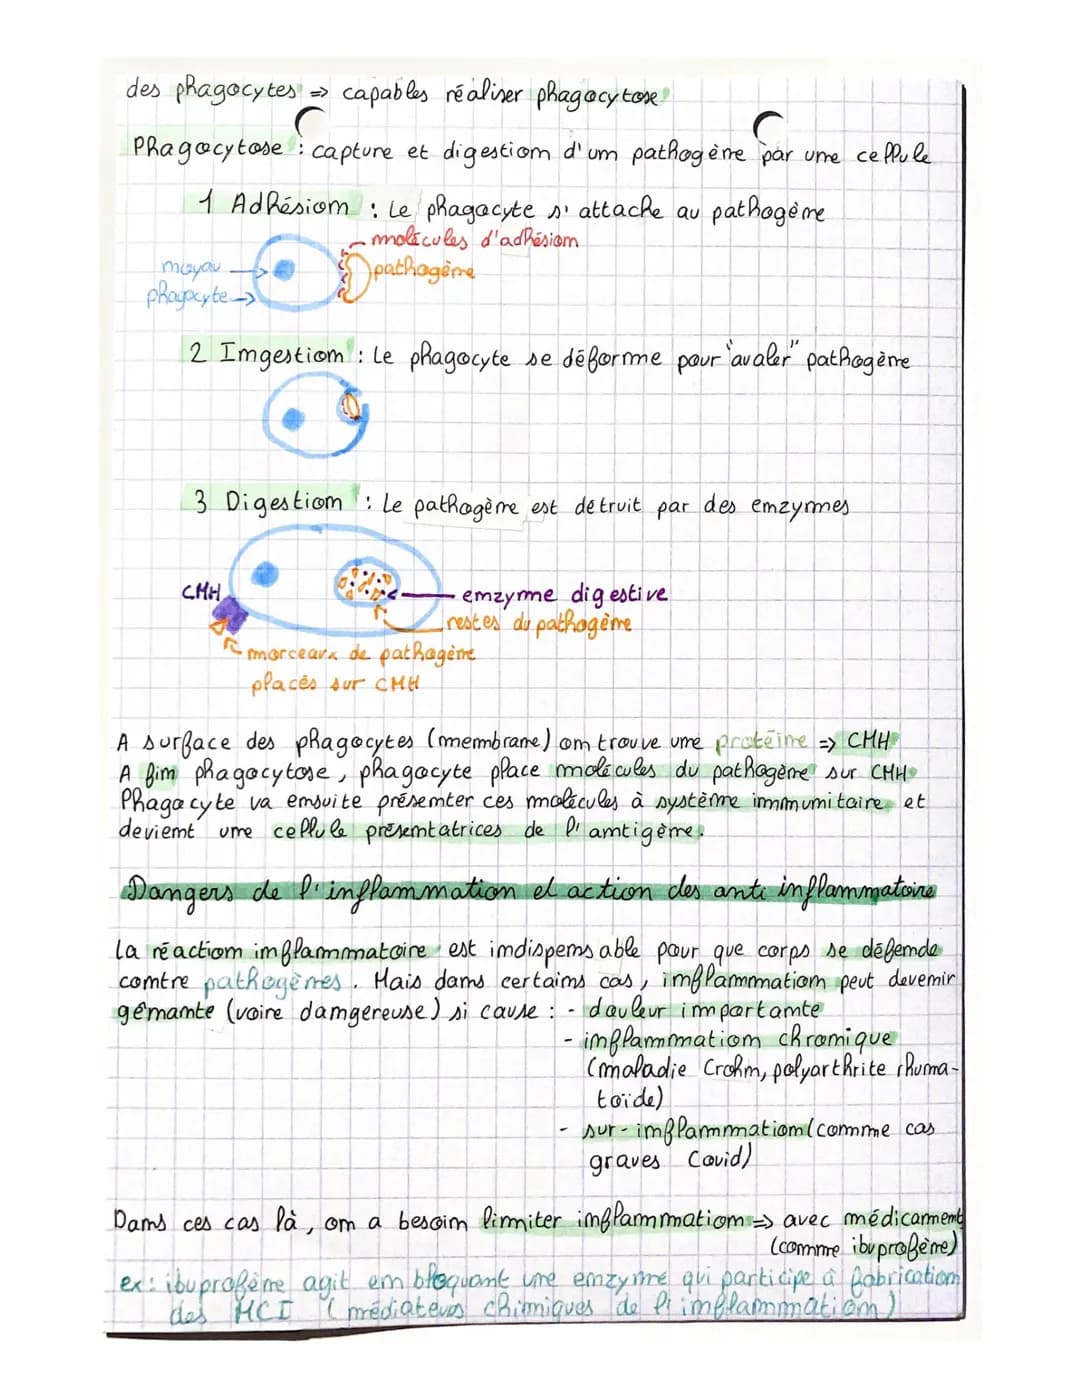 des phagocytes => capables réaliser phagocytose
Phagocytose : capture et digestion d'un pathogène par une cellule
1 Adhésion : Le phagocyte s'attache au pathogène
molécules d'adhésion
noyau
pathogène
phagocyte
2 Ingestion : Le phagocyte se déforme pour "avaler" pathogène
3 Digestion : Le pathogène est détruit par des enzymes
CMH
enzyme digestive
restes du pathogène
morceaux de pathogène
placés sur CMH
A surface des phagocytes (membrane) on trouve une protéine => CMH
A fin phagocytose, phagocyte place molécules du pathogène sur CMH
Phagocyte va ensuite présenter ces molécules à système immunitaire et
devient une cellule présentatrices de l'antigène.
Dangers de l'inflammation et action des anti inflammatoire
La réaction inflammatoire est indispensable pour que corps se défende
contre pathogènes. Mais dans certains cas, inflammation peut devenir
gênante (voire dangereuse) si cause : - douleur importante
- inflammation chronique
(maladie Crohn, polyarthrite rhuma-
toïde)
- sur-inflammation (comme cas
graves Covid)
Dans ces cas là, on a besoin limiter inflammation => avec médicament
(comme ibuprofène)
ex : ibuprofène agit en bloquant une enzyme qui participe à fabrication
des MCI (médiateurs chimiques de l'inflammation)